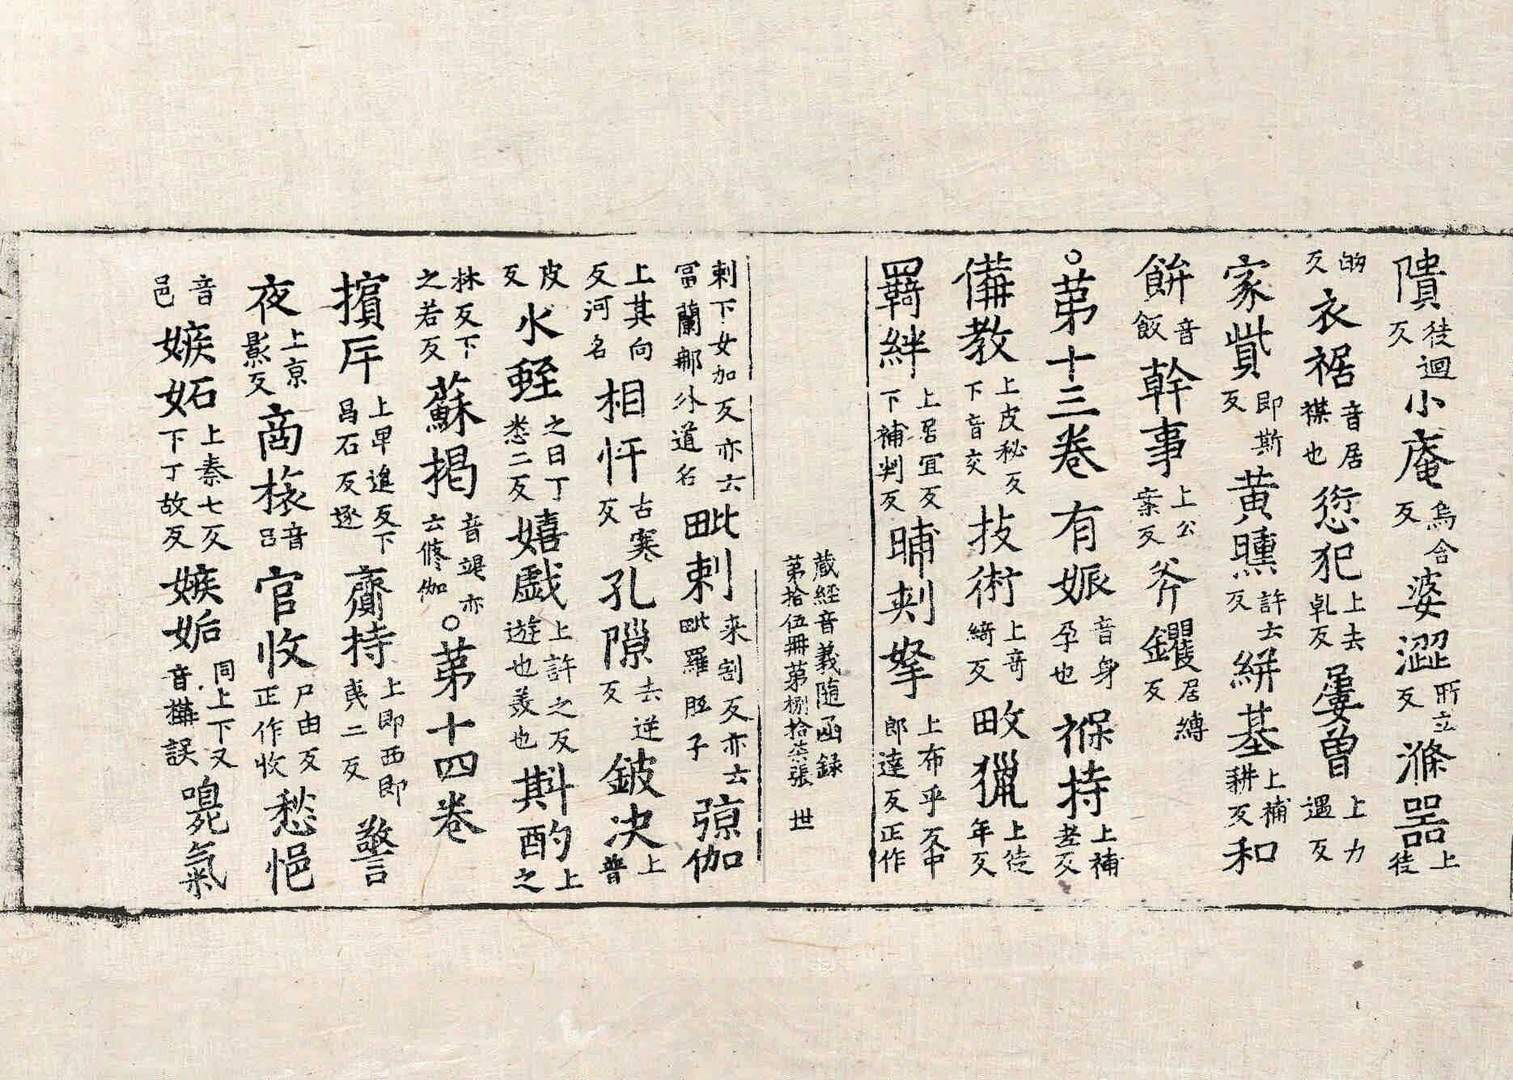 隤徒迴反小庵烏合反婆澀所立反滌器上徒
的反衣裾音居襟也愆犯上去乹反屢曽上力遇反
家貲即斯反黄曛許云反絣基上補耕反和
餅音飯幹事上公案反斧钁居縛反
○苐十三卷有娠音身孕也褓持上補老反
俻教上皮秘反下音交技術上竒綺反畋獵上徒年反
羇絆上居宜反下補判反晡剌拏上布乎反中郎達反正作
蔵經音義随函録
第拾伍冊第捌拾柒張 世
剌下女加反亦云冨蘭那外道名毗剌来割反亦云毗羅胝子弶伽
上其向反河名相忓古寒反孔隙去逆反鈹决上普
皮反水蛭之日丁悉二反嬉戯上許之反遊也美也斟酌上之
林反下之若反蘇揭音竭亦云修伽○苐十四卷
擯斥上卑進反下昌石反逐齎持上即西即夷二反警
夜上京影反商旅音吕官收尸由反正作收愁悒
音邑嫉妬上秦七反下丁故反嫉姤同上下又音搆誤㗝氣